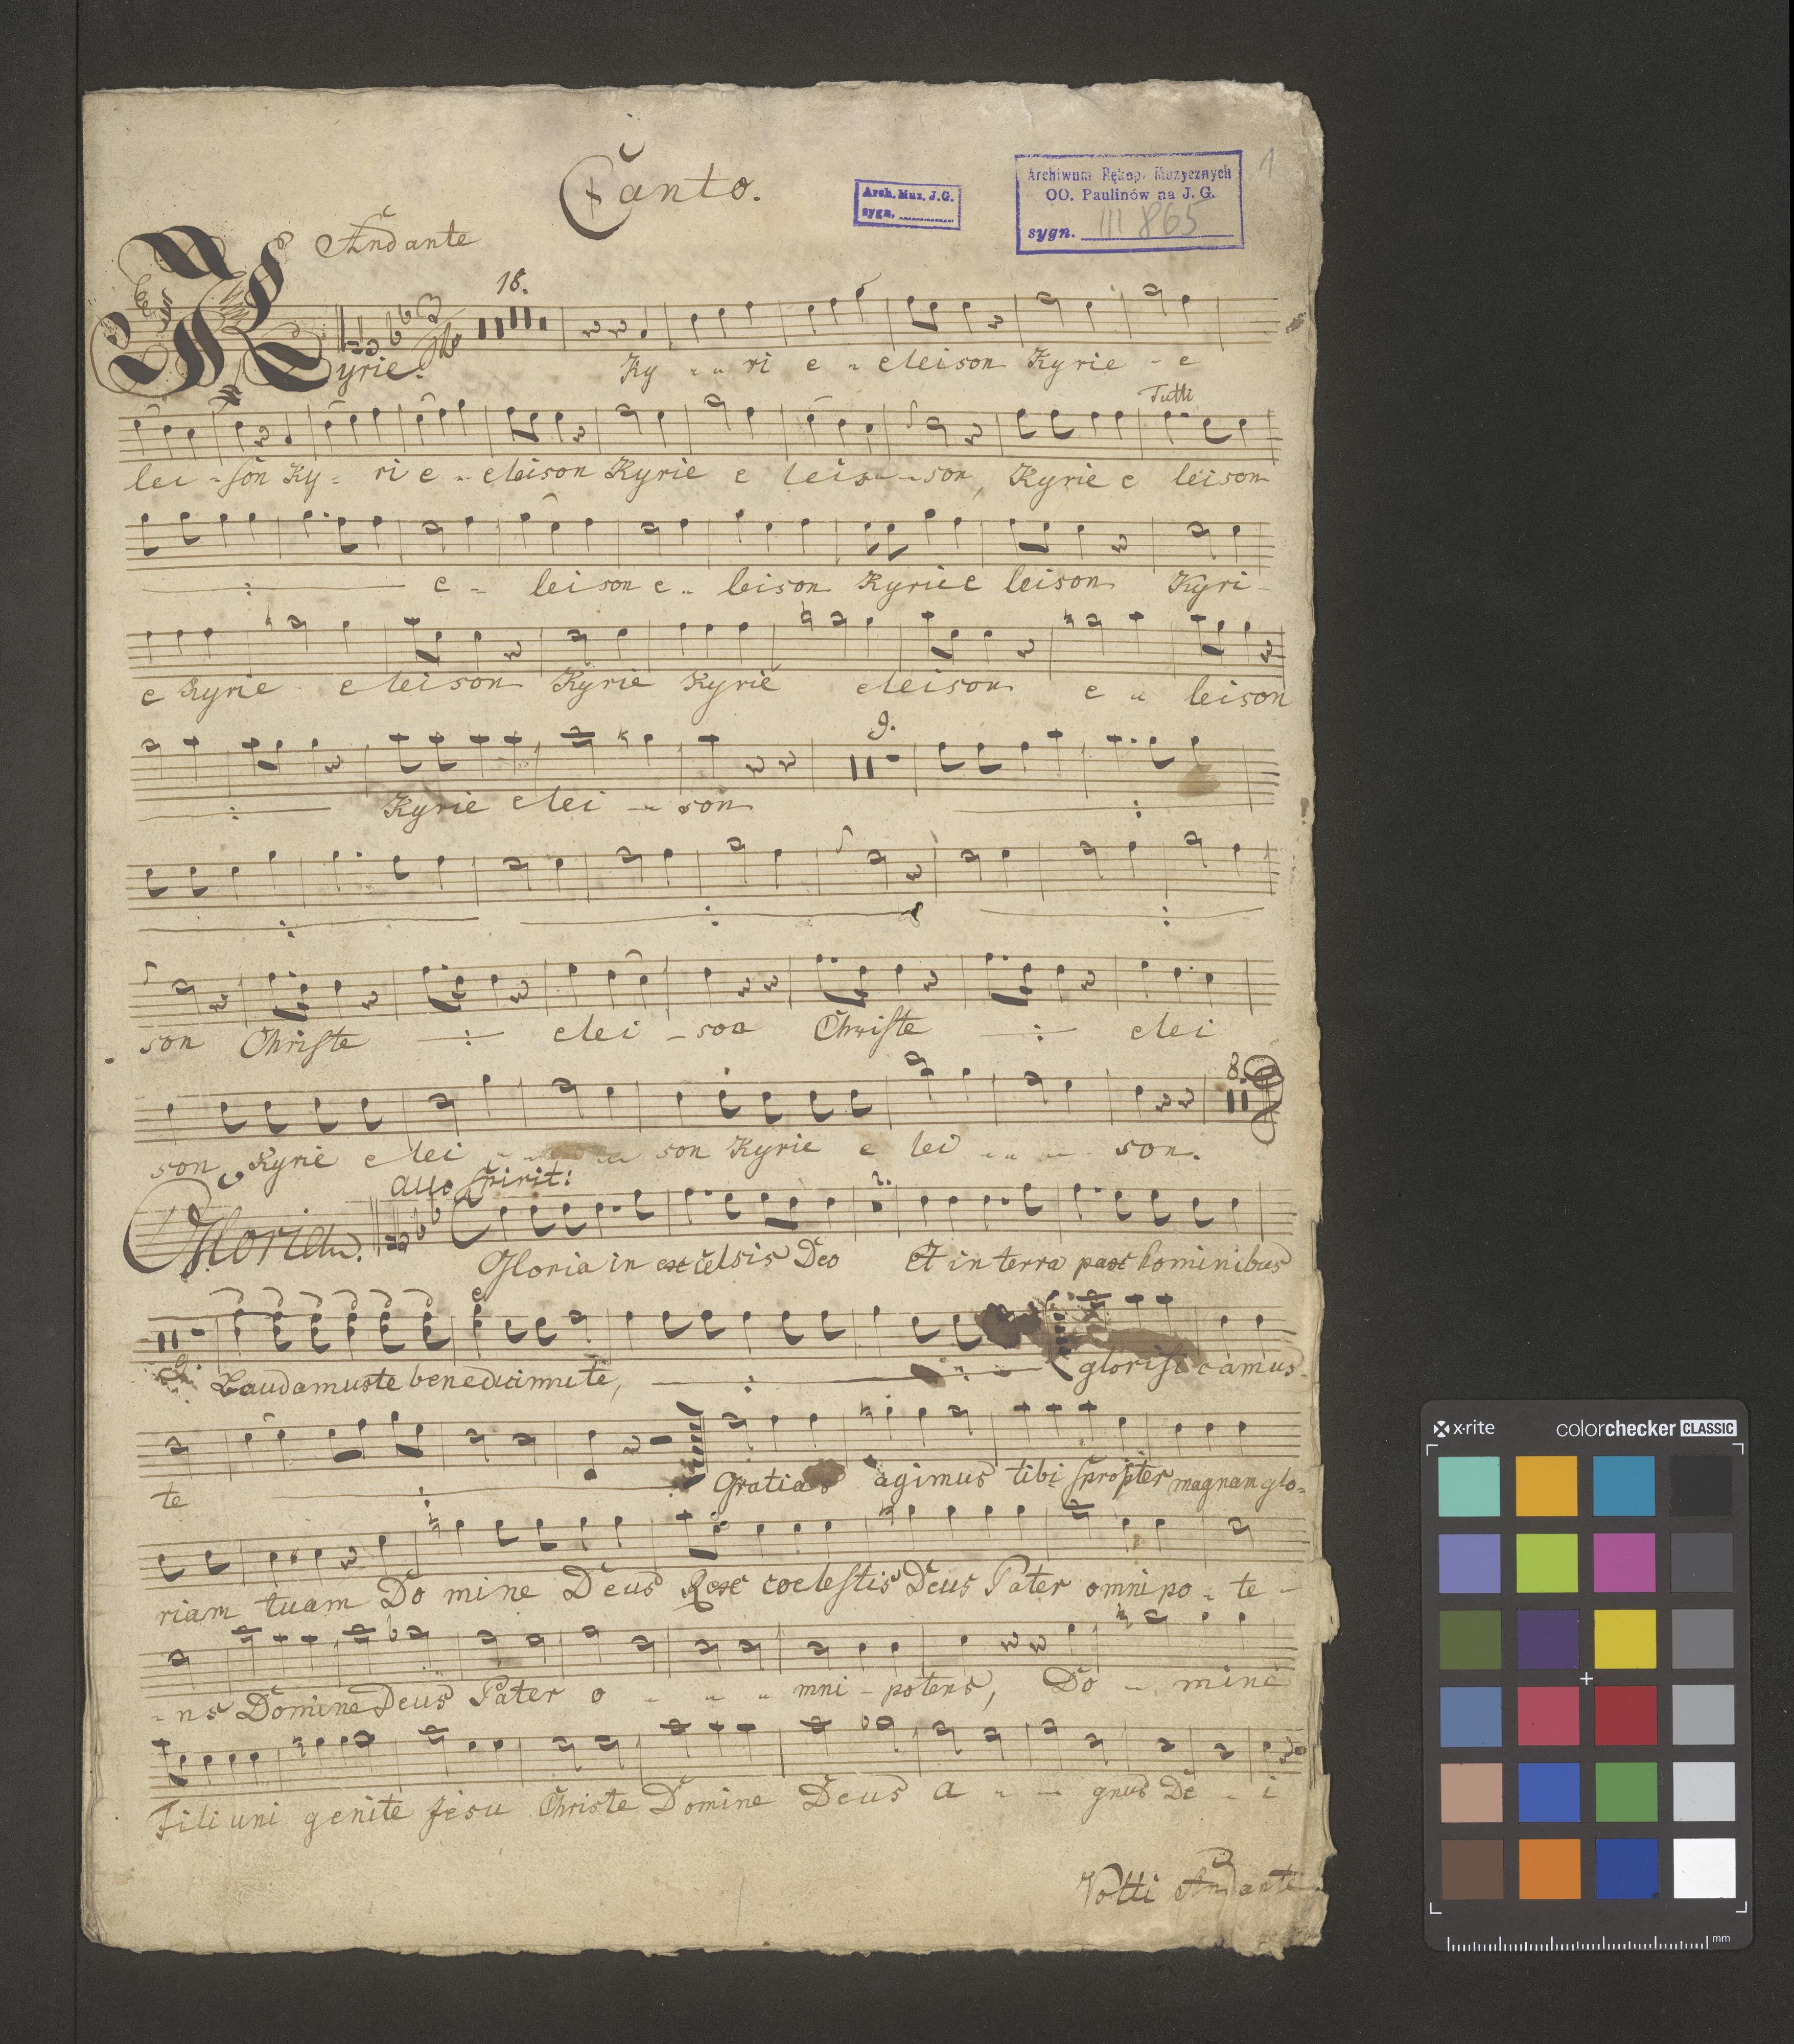 Canto.
Arch. Muz. J.G.
sygn.
Archiwum Rękop. Muzycznych
OO. Paulinów na J. G.
sygn. III 865
1
Andante
18.
Kyrie. Ky - - ri e - eleison Kyrie - e
Tutti
lei - son Ky - ri e - eleison Kyrie e leis - - son, Kyrie e leison
e - leison e - leison Kyrie e leison Kyri -
e Kyrie eleison Kyrie Kyrie eleison e - leison
9.
Kyrie elei - son
son Christe elei - son Christe elei
8.
son Kyrie elei - - - son Kyrie e lei - - - son.
allo spirit:
2.
Gloria. Gloria in excelsis Deo Et in terra pax hominibus
9. Laudamuste benedicimus te, glorificamus -
te Gratias agimus tibi propter magnam glo -
riam tuam Domine Deus Rex coelestis Deus Pater omnipo - te -
- ns Domine Deus Pater o - - - mni - potens, Do - mine
Fili uni genite Jesu Christe Domine Deus a - - gnus De - i
Volti Andante
x-rite
colorchecker CLASSIC
mm